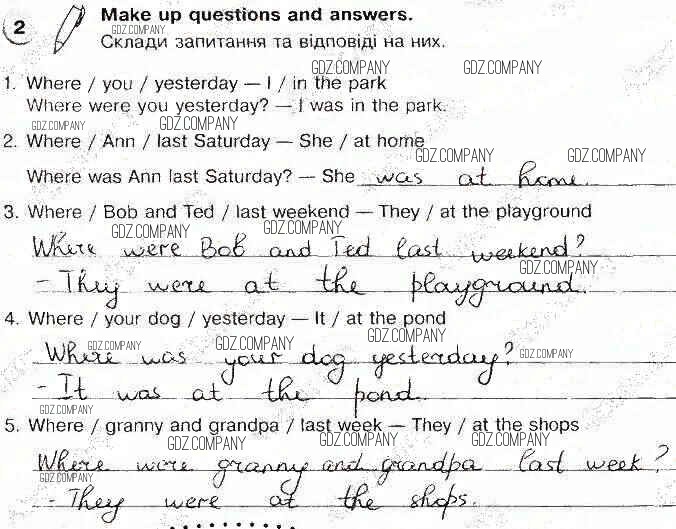 2 Make up questions and answers.
GDZ.COMPANY
Склади запитання та відповіді на них.
GDZ.COMPANY GDZ.COMPANY
1. Where / you / yesterday — I / in the park
Where were you yesterday? — I was in the park.
GDZ.COMPANY GDZ.COMPANY
2. Where / Ann / last Saturday — She / at home
GDZ.COMPANY GDZ.COMPANY
Where was Ann last Saturday? — She was at home.
3. Where / Bob and Ted / last weekend — They / at the playground
GDZ.COMPANY GDZ.COMPANY
Where were Bob and Ted last weekend?
GDZ.COMPANY
- They were at the playground.
4. Where / your dog / yesterday — It / at the pond
GDZ.COMPANY GDZ.COMPANY GDZ.COMPANY
Where was your dog yesterday? GDZ.COMPANY
- It was at the pond.
GDZ.COMPANY
5. Where / granny and grandpa / last week — They / at the shops
GDZ.COMPANY GDZ.COMPANY GDZ.COMPANY
Where were granny and grandpa last week?
GDZ.COMPANY
- They were at the shops.